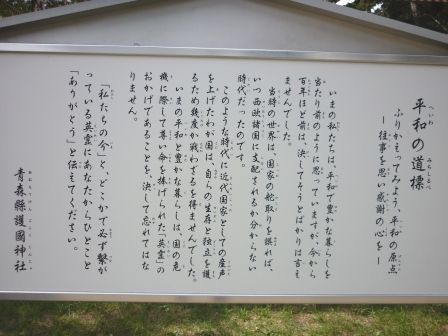 平和の道標
ふりかえってみよう、平和の原点
ー往事を思い感謝の心をー
いまの私たちは、平和で豊かな暮らしを
当たり前のように思っていますが、今から
百年ほど前は、決してそうとばかりは言え
ませんでした。
当時の世界は、国家の舵取りを誤れば、
いつ西欧諸国に支配されるか分からない
時代だったのです。
このような時代に近代国家としての産声
を上げたわが国は、自らの生存と独立を護
るため幾度か戦わざるを得ませんでした。
いまの平和と豊かな暮らしは、国の危
機に際して尊い命を捧げられた「英霊」の
おかげであることを、決して忘れてはな
りません。
「私たちの今」と、どこかで必ず繋が
っている英霊にあなたからひとこと
「ありがとう」と伝えてください。
青森縣護國神社